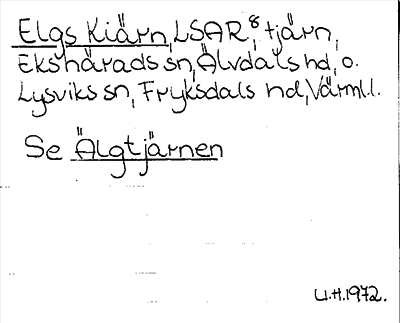 Elgs Kiärn, LSAR⁸, tjärn,
Ekshärads sn, Älvdals hd, o.
Lysviks sn, Fryksdals hd, Värml.l.
Se Älgtjärnen
U.H.1972.